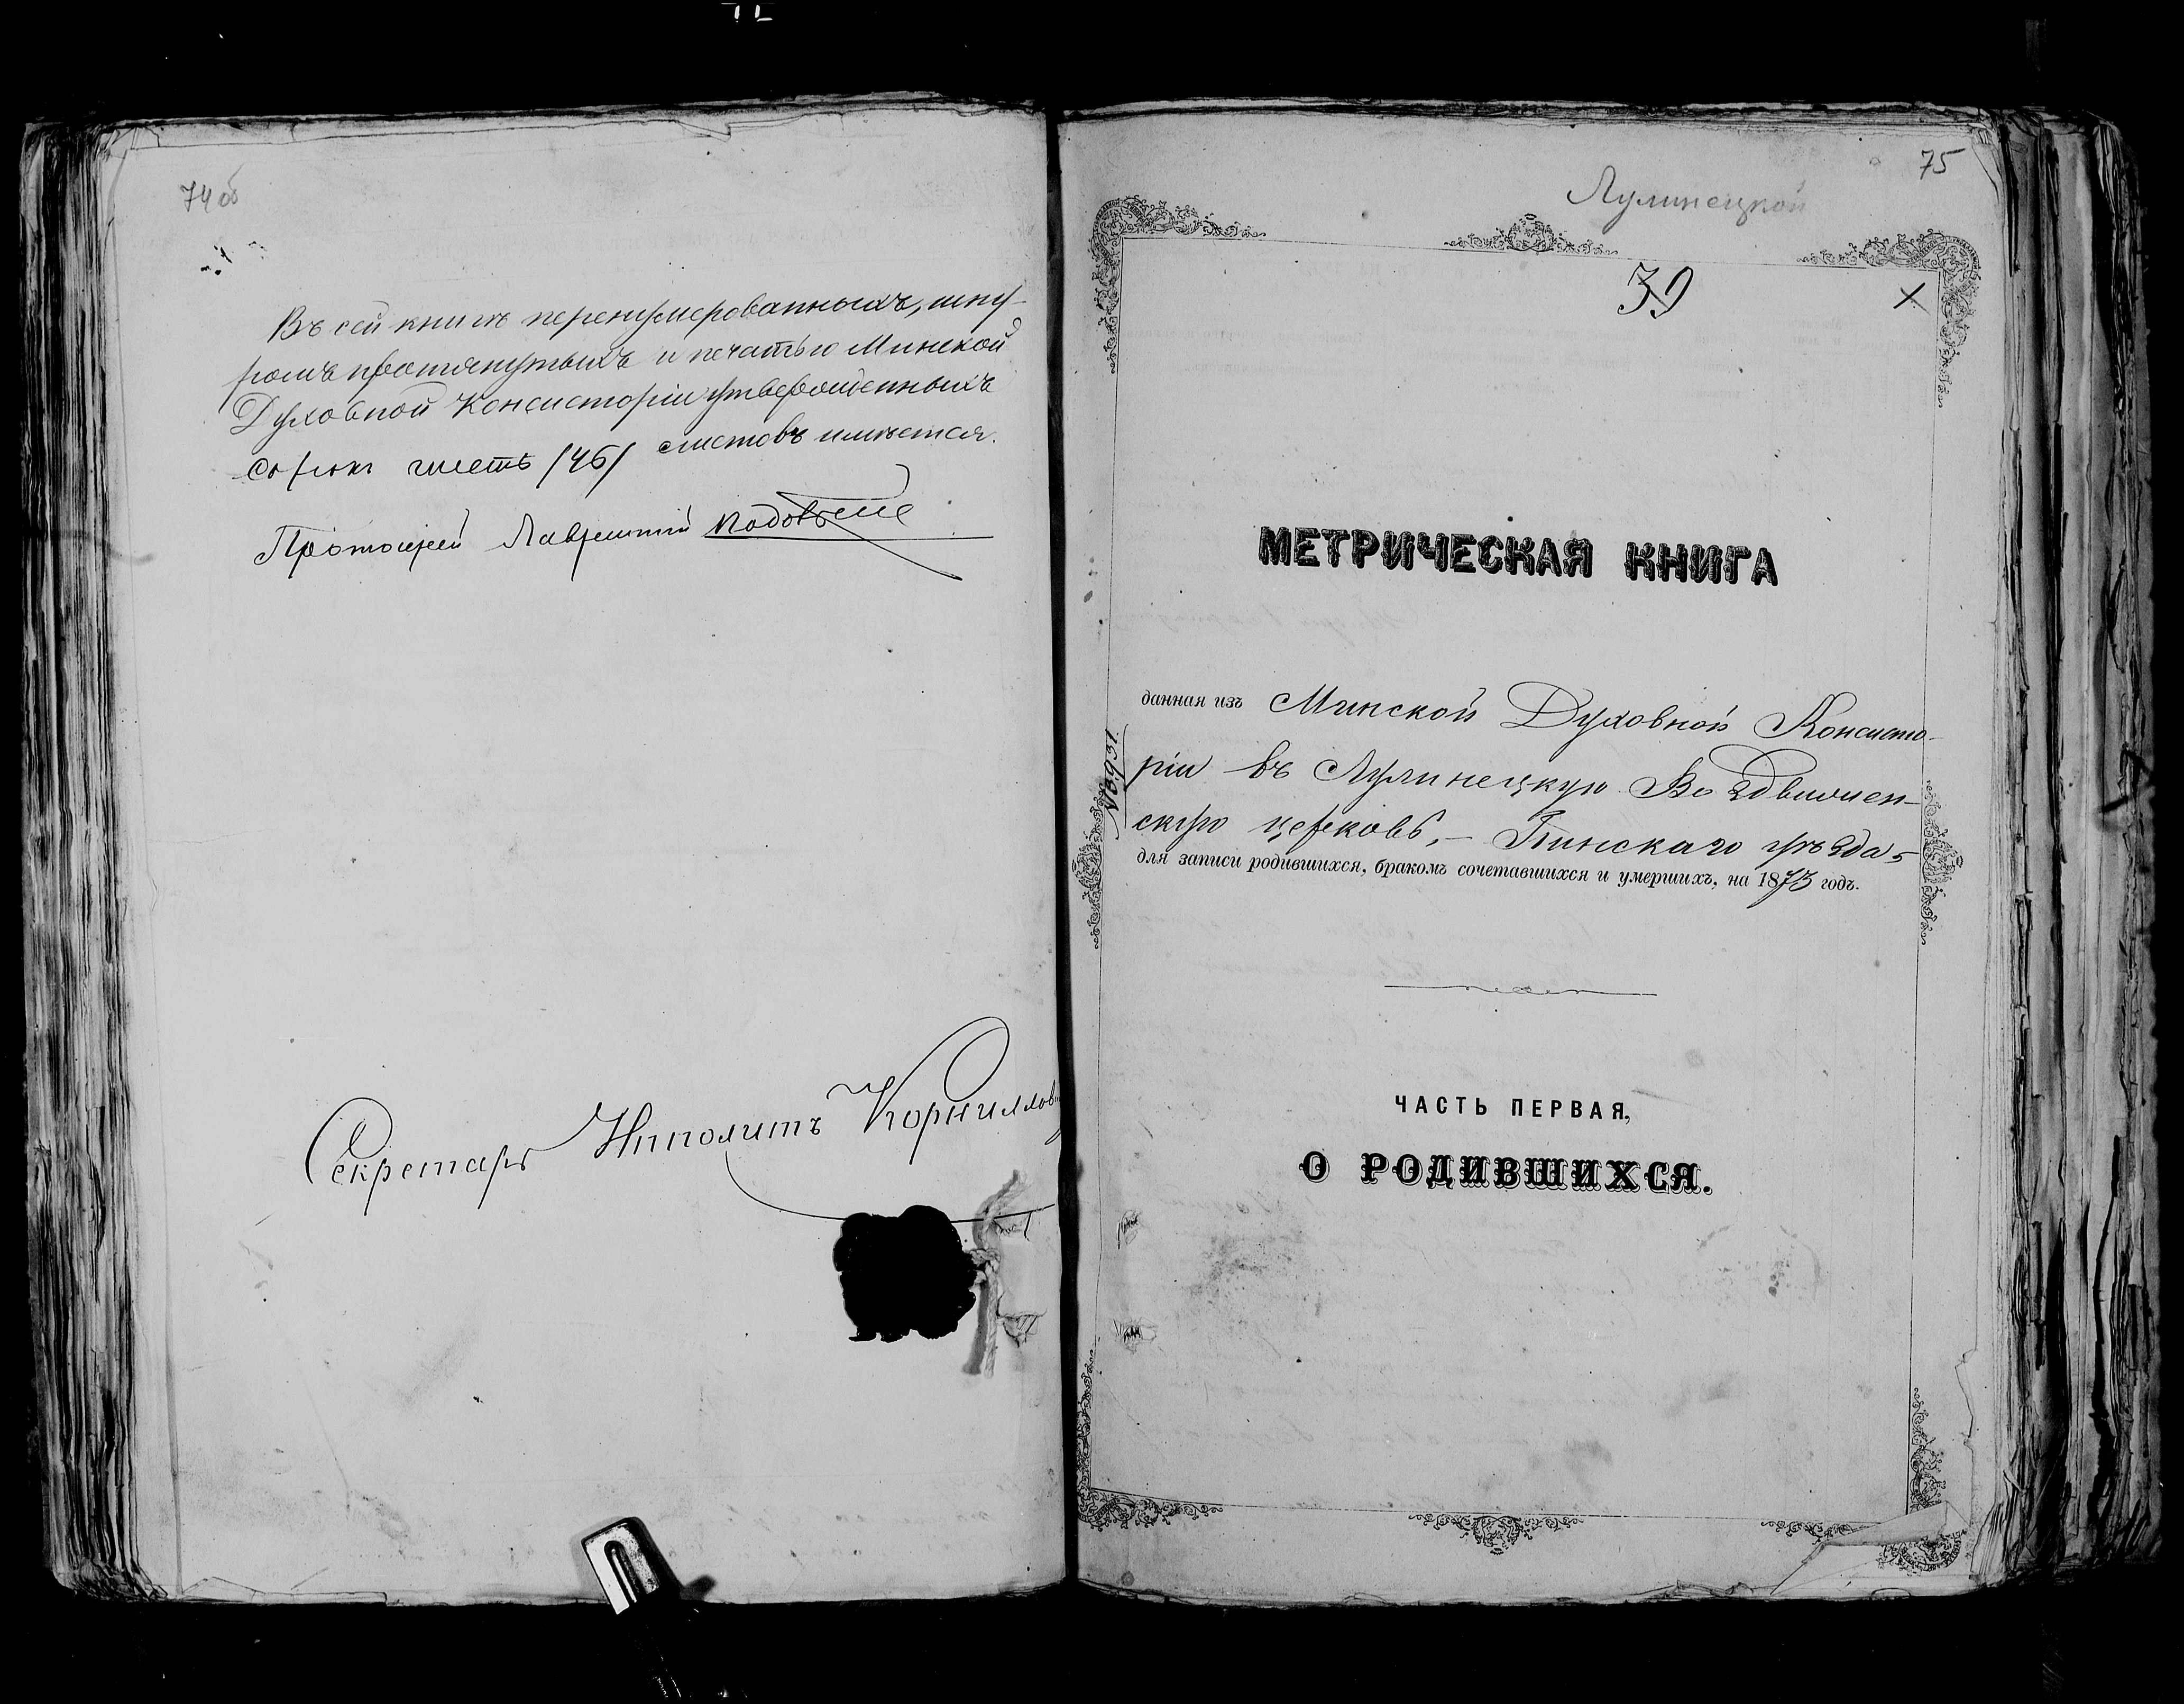 74 об
Въ сей книгѣ перенумерованныхъ, шну-
ромъ протянутыхъ и печатью Минской
Духовной Консисторіи утвержденныхъ
сорокъ шесть /46/ листовъ имѣется.
Протоіерей Лаврентій
Секретарь Ипполитъ Корниллов
75
Лулинецкой
39
МЕТРИЧЕСКАЯ КНИГА
данная изъ Минской Духовной Консисто-
ріи въ Лулинецкую Воздвижен-
скую церковь,- Пинскаго уѣзда,
для записи родившихся, бракомъ сочетавшихся и умершихъ, на 1873 годъ.
ЧАСТЬ ПЕРВАЯ,
О РОДИВШИХСЯ.